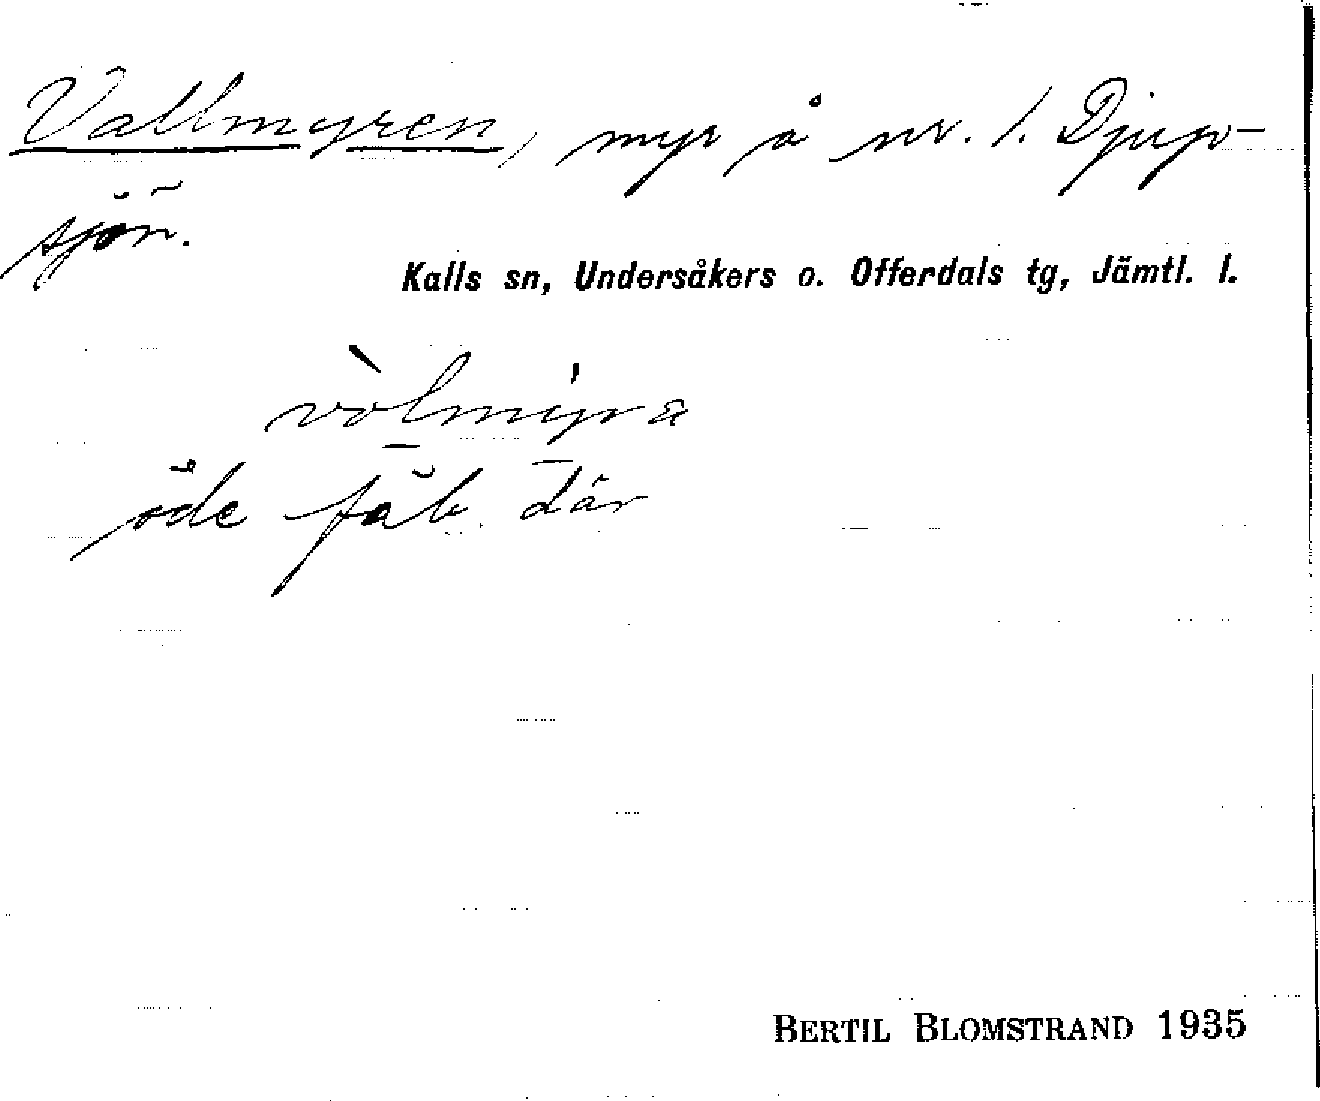 Vallmyren, myr å nr. 1. Djup-
sjön.
Kalls sn, Undersåkers o. Offerdals tg, Jämtl. l.
vòlmýra
öde fäb. där
BERTIL BLOMSTRAND 1935